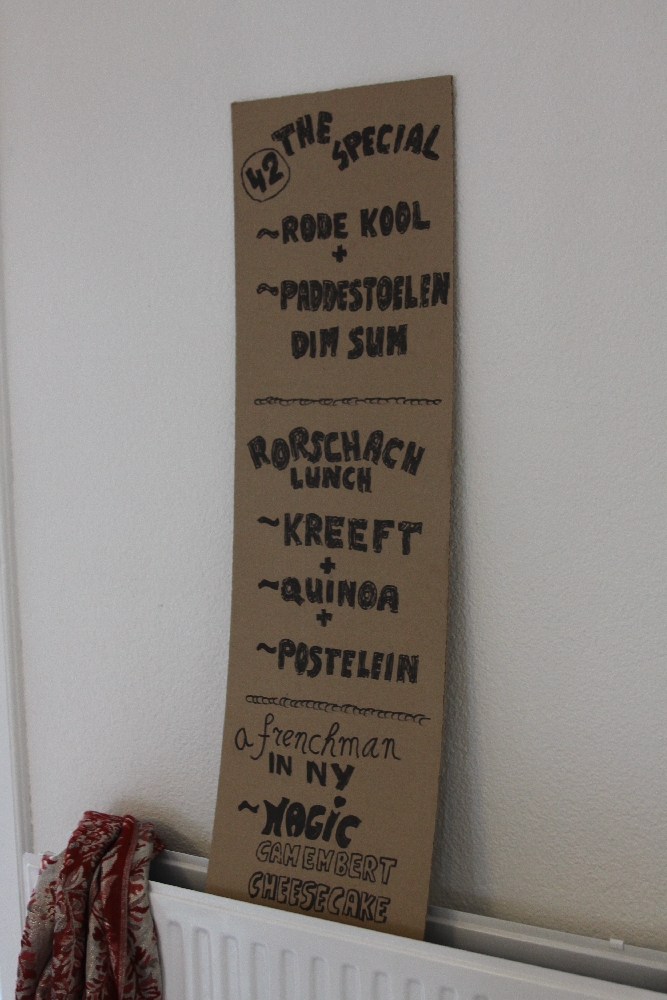 THE SPECIAL
42
~RODE KOOL
+
~PADDESTOELEN
DIM SUM
RORSCHACH
LUNCH
~KREEFT
+
~QUINOA
+
~POSTELEIN
a frenchman
IN NY
~MAGIC
CAMEMBERT
CHEESECAKE